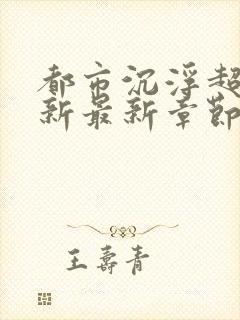 都市沉浮超
新最新章節
王壽青